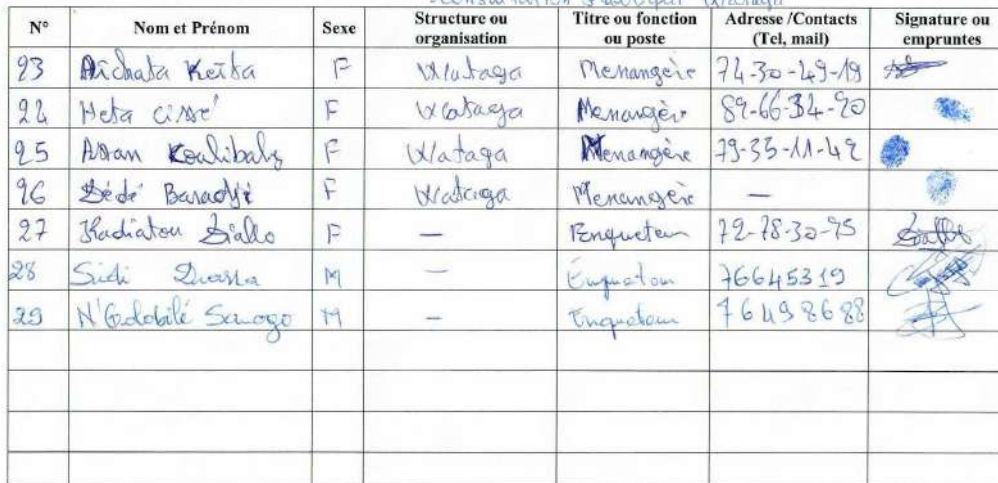 Consultation Publique Wataga
N° Nom et Prénom Sexe Structure ou organisation Titre ou fonction ou poste Adresse /Contacts (Tel, mail) Signature ou empruntes
23 Aïchata Keïta F Wataga Menangère 74-30-49-19
24 Heta Cissé F Wataga Menangère 89-66-34-20
25 Assan Koulibaly F Wataga Menangère 79-35-11-42
26 Dédé Baradji F Wataga Menangère —
27 Kadiatou Diallo F — Enqueteur 72-78-30-75 Diallo
28 Sidi M — Enqueteur 76645319
29 N'Golobilé Sanogo M — Enqueteur 76498688